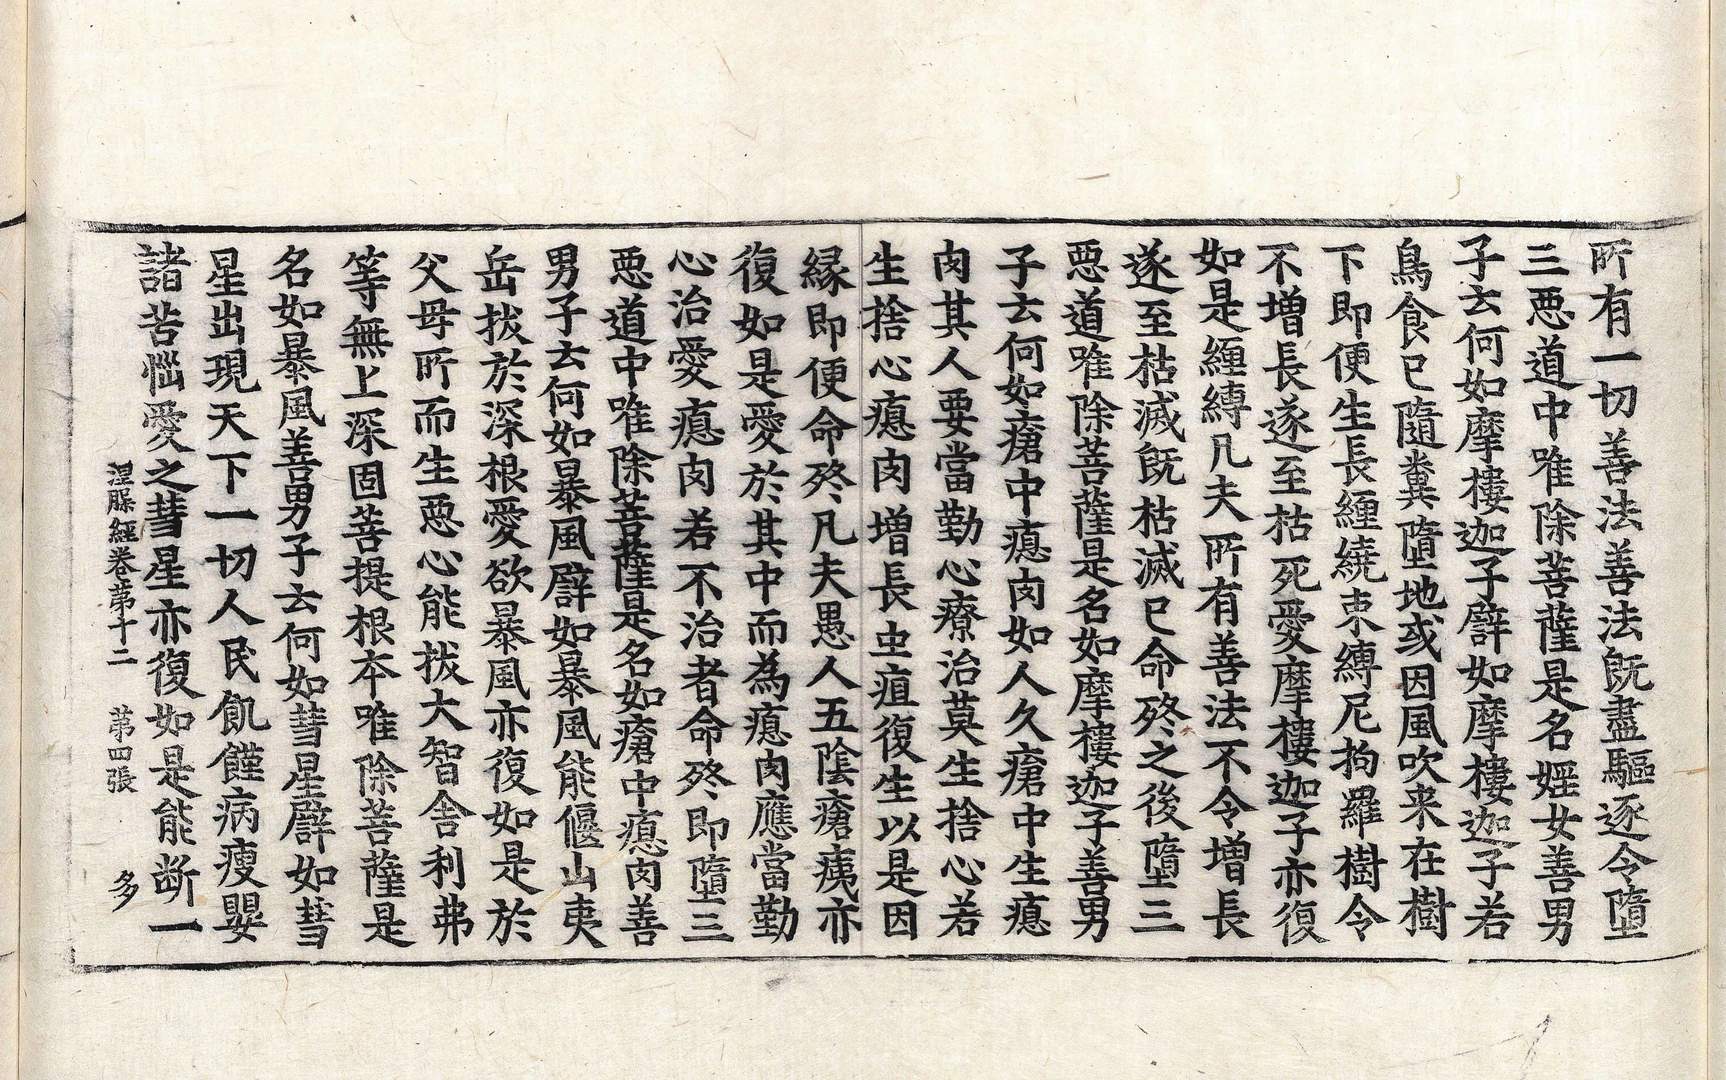 所有一切善法善法既盡驅逐令墮
三惡道中唯除菩薩是名婬女善男
子云何如摩樓迦子譬如摩樓迦子若
鳥食已隨糞墮地或因風吹来在樹
下即便生長纏繞束縛尼拘羅樹令
不增長遂至枯死愛摩樓迦子亦復
如是纏縛凡夫所有善法不令增長
遂至枯滅既枯滅已命終之後墮三
惡道唯除菩薩是名如摩樓迦子善男
子云何如瘡中瘜肉如人久瘡中生瘜
肉其人要當勤心療治莫生捨心若
生捨心瘜肉增長虫疽復生以是因
縁即便命終凡夫愚人五陰瘡痍亦
復如是愛於其中而為瘜肉應當勤
心治愛瘜肉若不治者命終即墮三
惡道中唯除菩薩是名如瘡中瘜肉善
男子云何如暴風譬如暴風能偃山夷
岳拔於深根愛欲暴風亦復如是於
父母所而生惡心能拔大智舍利弗
等無上深固菩提根本唯除菩薩是
名如暴風善男子云何如彗星譬如彗
星出現天下一切人民飢饉病瘦嬰
諸苦惱愛之彗星亦復如是能断一
涅槃經卷第十二 第四張 多